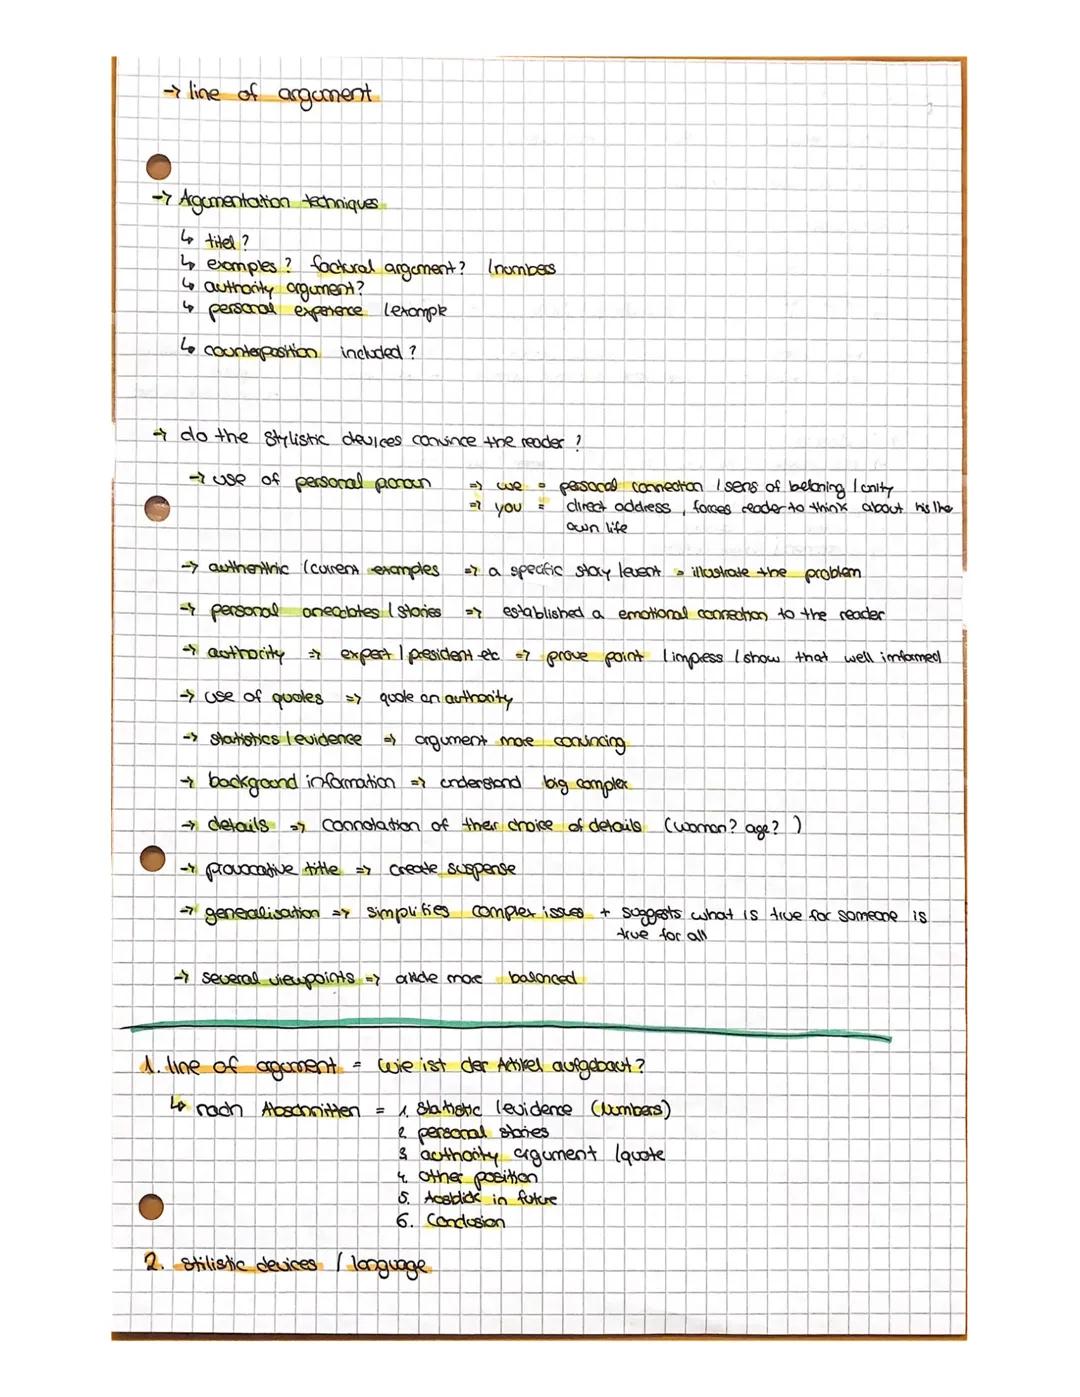 → line of argument
→ Argumentation techniques
↳ titel?
↳ examples? factural argument? /numbers
↳ authority argument?
↳ personal experience /example
↳ counterposition included?
→ do the stylistic devices convince the reader?
→ use of personal pronoun ⇒ we = personal connection / sens of beloning / unity
⇒ you = direct address, forces reader to think about his/her
own life
→ authenthric /current examples ⇒ a specific story /event → illustrate the problem
→ personal anecdotes / stories ⇒ established a emotional connection to the reader
→ authority ⇒ expert / president etc ⇒ prove point / impress / show that well informed
→ use of quotes ⇒ quote an authority
→ statistics / evidence ⇒ argument more convincing
→ background information ⇒ understand big complex
→ details ⇒ connotation of their choice of details (woman? age?)
→ provocative tittle ⇒ create suspense
→ generalisation ⇒ simplifies complex issues + suggests what is true for someone is
true for all
→ several viewpoints ⇒ article more balanced
1. line of argument = Wie ist der Artikel aufgebaut?
↳ nach Abschnitten = 1. Statistic /evidence (Numbers)
2. personal stories
3. authority argument /quote
4. other position
5. Ausblick in future
6. Conclusion
2. Stilistic devices / language